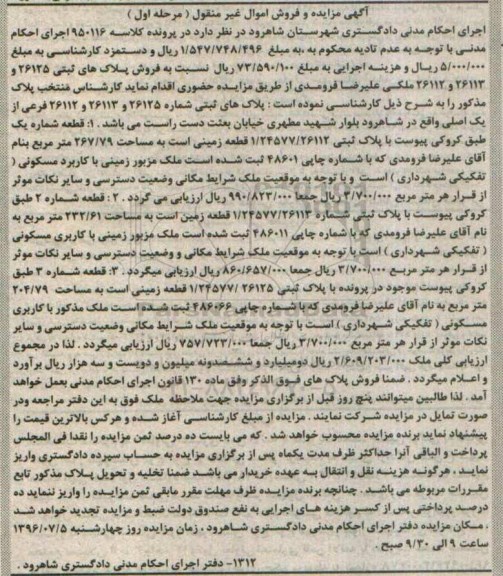 آگهی مزایده و فروش اموال غیر منقول ( مرحله اول )
اجرای احکام مدنی دادگستری شهرستان شاهرود در نظر دارد در پرونده کلاسه ۹۵۰۱۱۶ اجرای احکام
مدنی با توجه به عدم تادیه محکوم به ،به مبلغ ۱/۵۴۷/۷۴۸/۴۹۶ ریال و دستمزد کارشناسی به مبلغ
۵/۰۰۰/۰۰۰ ریال و هزینه اجرایی به مبلغ ۷۳/۵۹۰/۱۰۰ ریال نسبت به فروش پلاک های ثبتی ۲۶۱۲۵ و
۲۶۱۱۳ و ۲۶۱۱۲ ملکی علیرضا فرومدی از طریق مزایده حضوری اقدام نماید کارشناس منتخب پلاک
مذکور را به شرح ذیل کارشناسی نموده است : پلاک های ثبتی شماره ۲۶۱۲۵ و ۲۶۱۱۳ و ۲۶۱۱۲ فرعی از
یک اصلی واقع در شاهرود بلوار شهید مطهری خیابان بعثت دست راست می باشد . ۱: قطعه شماره یک
طبق کروکی پیوست با پلاک ثبتی ۱/۲۴۵۷۷/۲۶۱۱۲ قطعه زمینی است به مساحت ۲۶۷/۷۹ متر مربع بنام
آقای علیرضا فرومدی که با شماره چاپی ۴۸۶۰۱ ثبت شده است ملک مزبور زمینی با کاربرد مسکونی (
تفکیکی شهرداری ) است و با توجه به موقعیت ملک شرایط مکانی وضعیت دسترسی و سایر نکات موثر
از قرار هر متر مربع ۳/۷۰۰/۰۰۰ ریال جمعا ۹۹۰/۸۲۳/۰۰۰ ریال ارزیابی می گردد . ۲ : قطعه شماره ۲ طبق
کروکی پیوست با پلاک ثبتی شماره ۱/۲۴۵۷۷/۲۶۱۱۳ قطعه زمین است به مساحت ۲۳۲/۶۱ متر مربع به
نام آقای علیرضا فرومدی که با شماره چاپی ۴۸۶۰۱۱ ثبت شده است ملک مزبور زمینی با کاربری مسکونی
( تفکیکی شهرداری ) است با توجه به موقعیت ملک شرایط مکانی و وضعیت دسترسی و سایر نکات موثر
از قرار هر متر مربع ۳/۷۰۰/۰۰۰ ریال جمعا ۸۶۰/۶۵۷/۰۰۰ ریال ارزیابی میگردد . ۳: قطعه شماره ۳ طبق
کروکی پیوست موجود در پرونده با پلاک ثبتی ۲۶۱۲۵ /۱/۲۴۵۷۷ قطعه زمینی است به مساحت ۲۰۴/۷۹
متر مربع به نام آقای علیرضا فرومدی که با شماره چاپی ۴۸۶۰۶۶ ثبت شده است ملک مذکور با کاربری
مسکونی ( تفکیکی شهرداری ) است با توجه به موقعیت ملک شرایط مکانی وضعیت دسترسی و سایر
نکات موثر از قرار هر متر مربع ۳/۷۰۰/۰۰۰ ریال جمعا ۷۵۷/۷۲۳/۰۰۰ ریال ارزیابی میگردد . لذا در مجموع
ارزیابی کلی ملک ۲/۶۰۹/۲۰۳/۰۰۰ ریال دومیلیارد و ششصدونه میلیون و دویست و سه هزار ریال برآورد
و اعلام میگردد . ضمنا فروش پلاک های فوق الذکر وفق ماده ۱۳۰ قانون اجرای احکام مدنی بعمل خواهد
آمد . لذا طالبین میتوانند پنچ روز قبل از برگزاری مزایده جهت ملاحظه ملک فوق به این دفتر مراجعه ودر
صورت تمایل در مزایده شرکت نمایند . مزایده از مبلغ کارشناسی آغاز شده و هرکس بالاترین قیمت را
پیشنهاد نماید برنده مزایده محسوب خواهد شد . که می بایست ده درصد ثمن مزایده را نقدا فی المجلس
پرداخت و الباقی آنرا حداکثر ظرف مدت یکماه پس از برگزاری مزایده به حساب سپرده دادگستری واریز
نمایند . هرگونه هزینه نقل و انتقال به عهده خریدار می باشد ضمنا تخلیه و تحویل پلاک مذکور تابع
مقررات مربوطه می باشد . چنانچه برنده مزایده ظرف مهلت مقرر مابقی ثمن مزایده را واریز ننماید ده
درصد پرداختی پس از کسر هزینه های اجرایی به نفع صندوق دولت ضبط و مزایده تجدید خواهد شد
، مکان مزایده دفتر اجرای احکام مدنی دادگستری شاهرود ، زمان مزایده روز چهارشنبه ۱۳۹۶/۰۷/۵
ساعت ۹ الی ۹/۳۰ صبح .
۱۳۱۲- دفتر اجرای احکام مدنی دادگستری شاهرود .